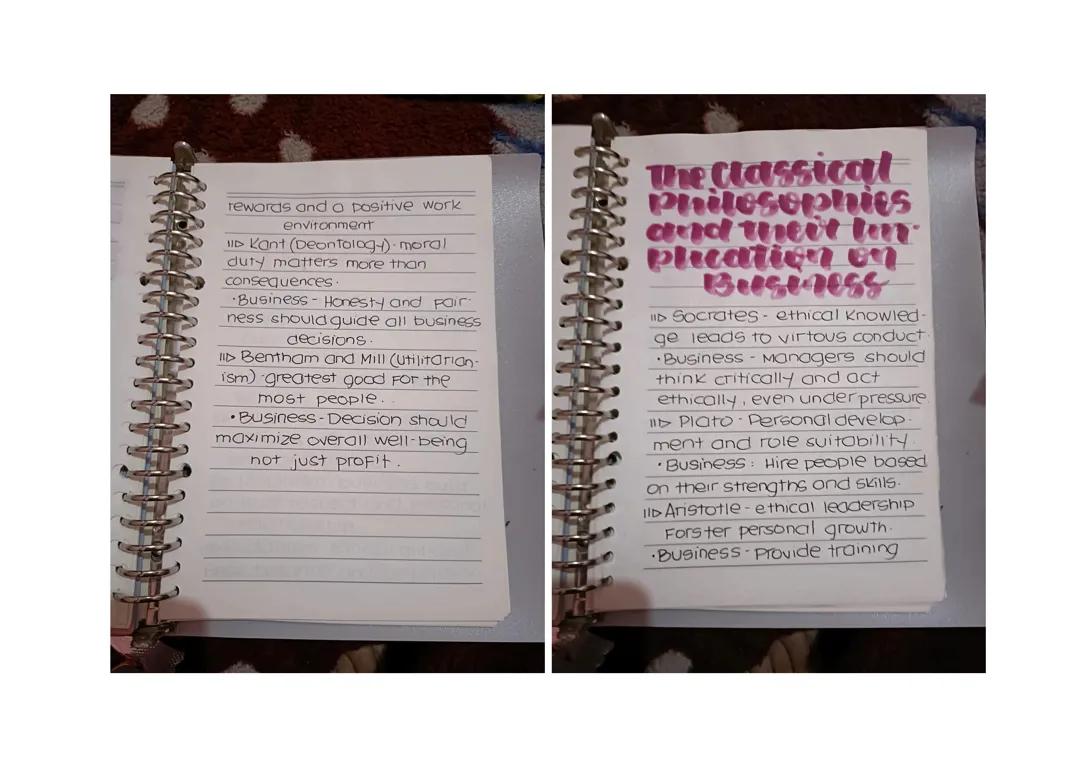 rewards and a positive work
environment
II▷ Kant (Deontology)· moral
duty matters more than
consequences·
·Business - Honesty and Fair-
ness should guide all business
decisions.
II▷ Bentham and Mill (Utilitarian-
ism) ·greatest good For the
most people..
·Business - Decision should
maximize overall well-being
not just profit.
The Classical
Philosophies
and their Im-
plication on
Business
II▷ Socrates - ethical Knowled-
ge leads to virtous conduct.
·Business - Managers should
think critically and act
ethically, even under pressure.
II▷ Plato - Personal develop-
ment and role suitability.
·Business: Hire people based
on their strengths and skills.
II▷ Aristotle - ethical leadership
Forster personal growth.
·Business - Provide training